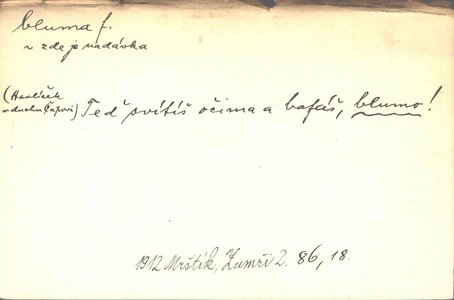 bluma f.
~ zde jº nadávka
(Havlíček
v duchu Čapovi) Teď svítíš očima a bafáš, blumo!
1912 Mrštík, Zumři 2. 86, 18.